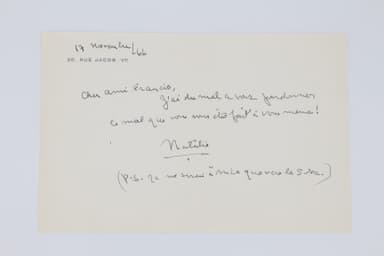 17 novembre/66
20, RUE JACOB VIᵉ
Cher ami Francis,
J'ai du mal a vous pardonner
ce mal que vous vous êtes fait à vous même!
Natalie
(P.S. à que vers le 5